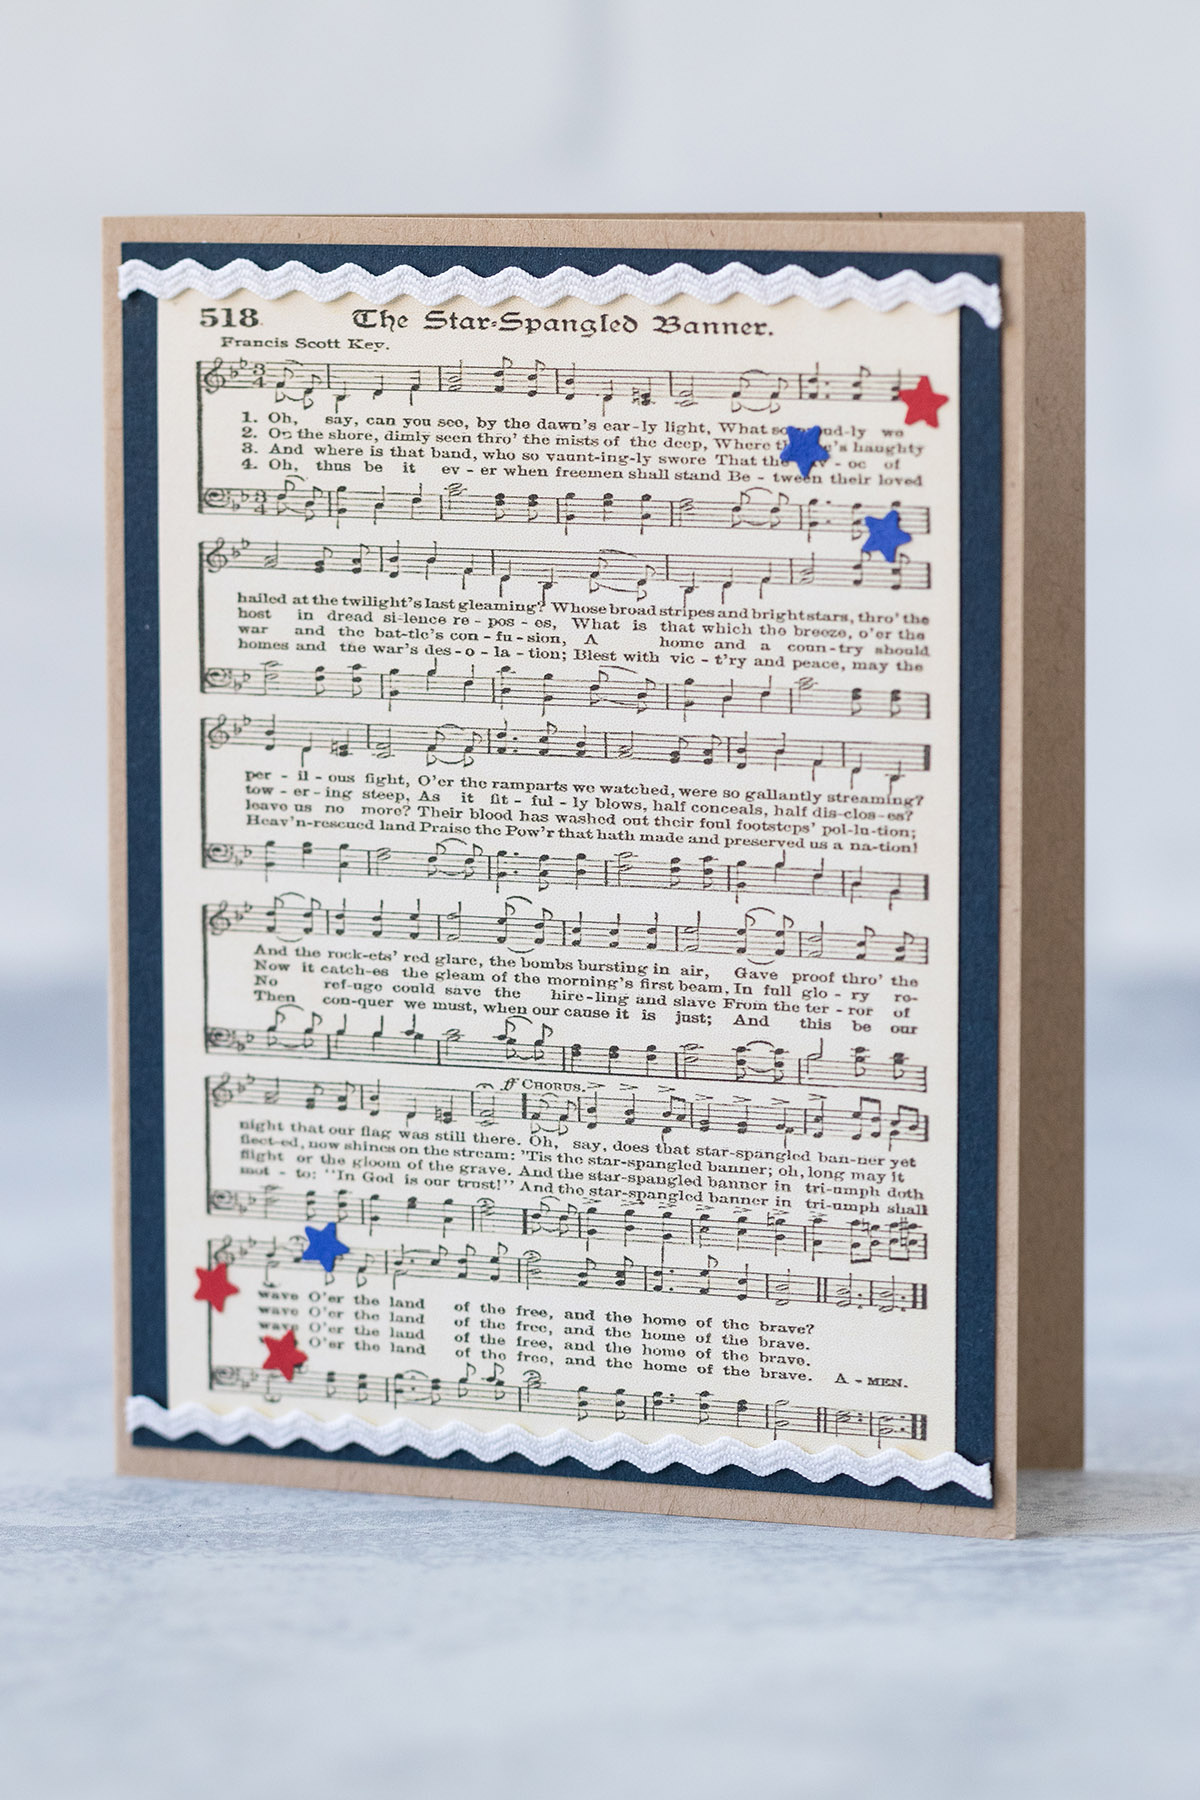 518. The Star-Spangled Banner.
Francis Scott Key.
1. Oh, say, can you see, by the dawn's ear-ly light, What so ud-ly we
2. On the shore, dimly seen thro' the mists of the deep, Where th e's haughty
3. And where is that band, who so vaunt-ing-ly swore That the v - oc of
4. Oh, thus be it ev - er when freemen shall stand Be - tween their loved
hailed at the twilight's last gleaming? Whose broad stripes and bright stars, thro' the
host in dread si-lence re - pos - es, What is that which the breeze, o'er the
war and the bat-tle's con - fu - sion, A home and a coun-try should
homes and the war's des - o - la - tion; Blest with vic - t'ry and peace, may the
per - il - ous fight, O'er the ramparts we watched, were so gallantly streaming?
tow - er - ing steep, As it fit - ful - ly blows, half conceals, half dis-clos-es?
leave us no more? Their blood has washed out their foul footsteps' pol-lu-tion;
Heav'n-rescued land Praise the Pow'r that hath made and preserved us a na-tion!
And the rock-ets' red glare, the bombs bursting in air, Gave proof thro' the
Now it catch-es the gleam of the morning's first beam, In full glo - ry re-
No ref-uge could save the hire-ling and slave From the ter - ror of
Then con-quer we must, when our cause it is just; And this be our
ff CHORUS.
night that our flag was still there. Oh, say, does that star-spangled ban-ner yet
flect-ed, now shines on the stream: 'Tis the star-spangled banner; oh, long may it
flight or the gloom of the grave. And the star-spangled banner in tri-umph doth
mot - to: "In God is our trust!" And the star-spangled banner in tri-umph shall
wave O'er the land of the free, and the home of the brave?
wave O'er the land of the free, and the home of the brave.
wave O'er the land of the free, and the home of the brave.
O'er the land of the free, and the home of the brave. A - MEN.